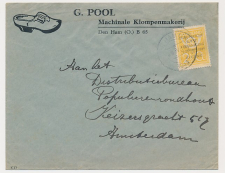 G. POOL
Machinale Klompenmakerij
Den Ham (O.) B 63
Aan het
Distributiebureau
Populierenrondhout
Keizersgracht
Amsterdam